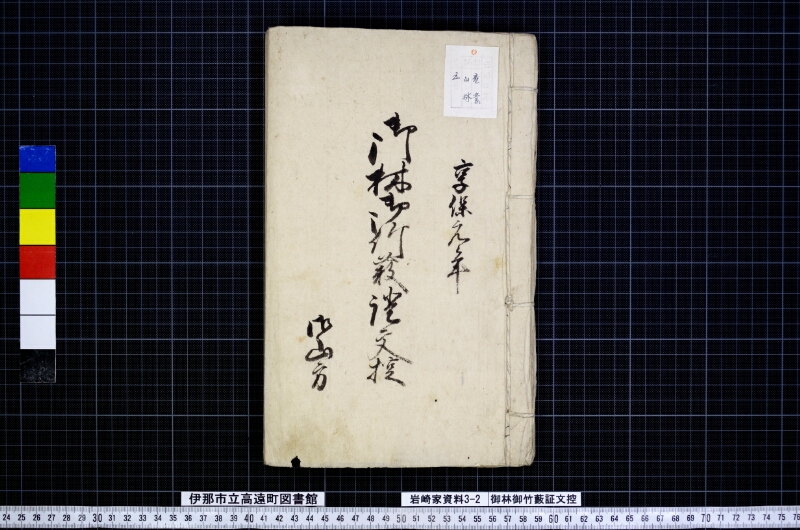 享保元年
御林御竹藪證文控
御山方
伊那市立高遠町図書館
岩崎家資料3-2
御林御竹藪証文控
24 25 26 27 28 29 30 31 32 33 34 35 36 37 38 39 40 41 42 43 44 45 46 47 48 49 50 51 52 53 54 55 56 57 58 59 60 61 62 63 64 65 66 67 68 69 70 71 72 73 74 75 76